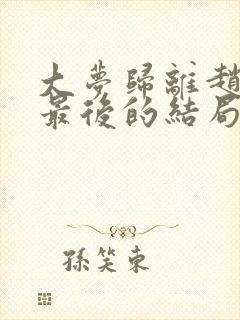 大夢歸離趙
最後的結局
孫笑東